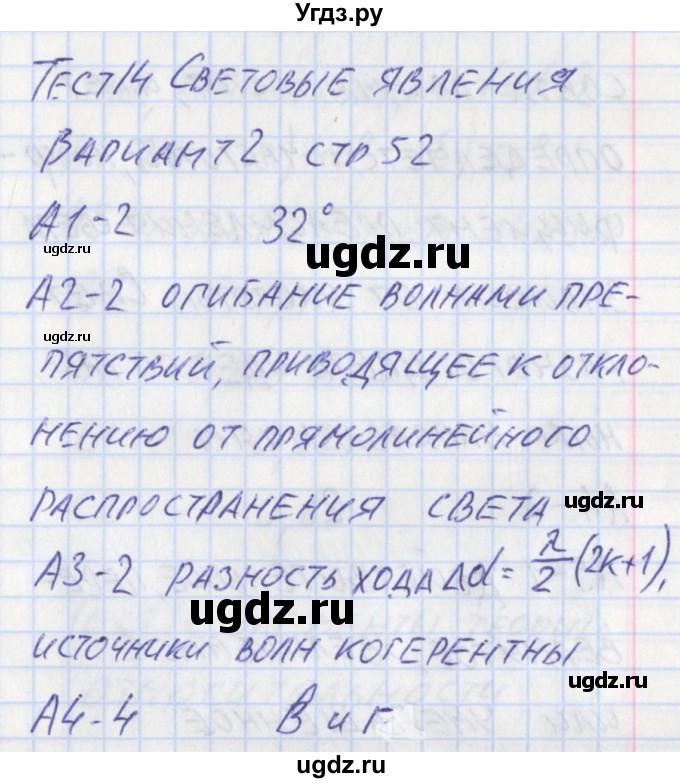 Угдз.ру
Тест 14 Световые явления
Вариант 2 стр 52
А1-2 32°
ugdz.ru
ugdz.ru
А2-2 огибание волнами пре-
ugdz.ru
пятствий, приводящее к откло-
нению от прямолинейного
распространения света
ugdz.ru
А3-2 разность хода Δd = λ/2 (2к+1),
ugdz.ru
источники волн когерентны
ugdz.ru
А4-4 В и Г
ugdz.ru